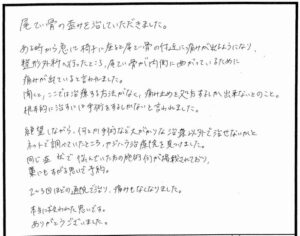 尾てい骨の歪みを治していただきました。
ある時から急に椅子に座ると尾てい骨の付近に痛みが出るようになり、
整形外科へ行ったところ、尾てい骨が内側に曲がっているために
痛みが出ていると言われました。
聞くと、ここでは治療する方法がなく、痛み止めを処方するしか出来ないとのこと。
根本的に治すには手術をするしかないと言われました。
絶望しながら、何とか手術など大がかりな治療以外で治せないかと
ネットで調べていたところ、治療院を見つけました。
同じ症状で悩んでいた方の施術例が掲載されており、
藁にもすがる思いで予約。
2〜3回ほどの通院で治り、痛みもなくなりました。
本当に救われた思いです。
ありがとうございました。